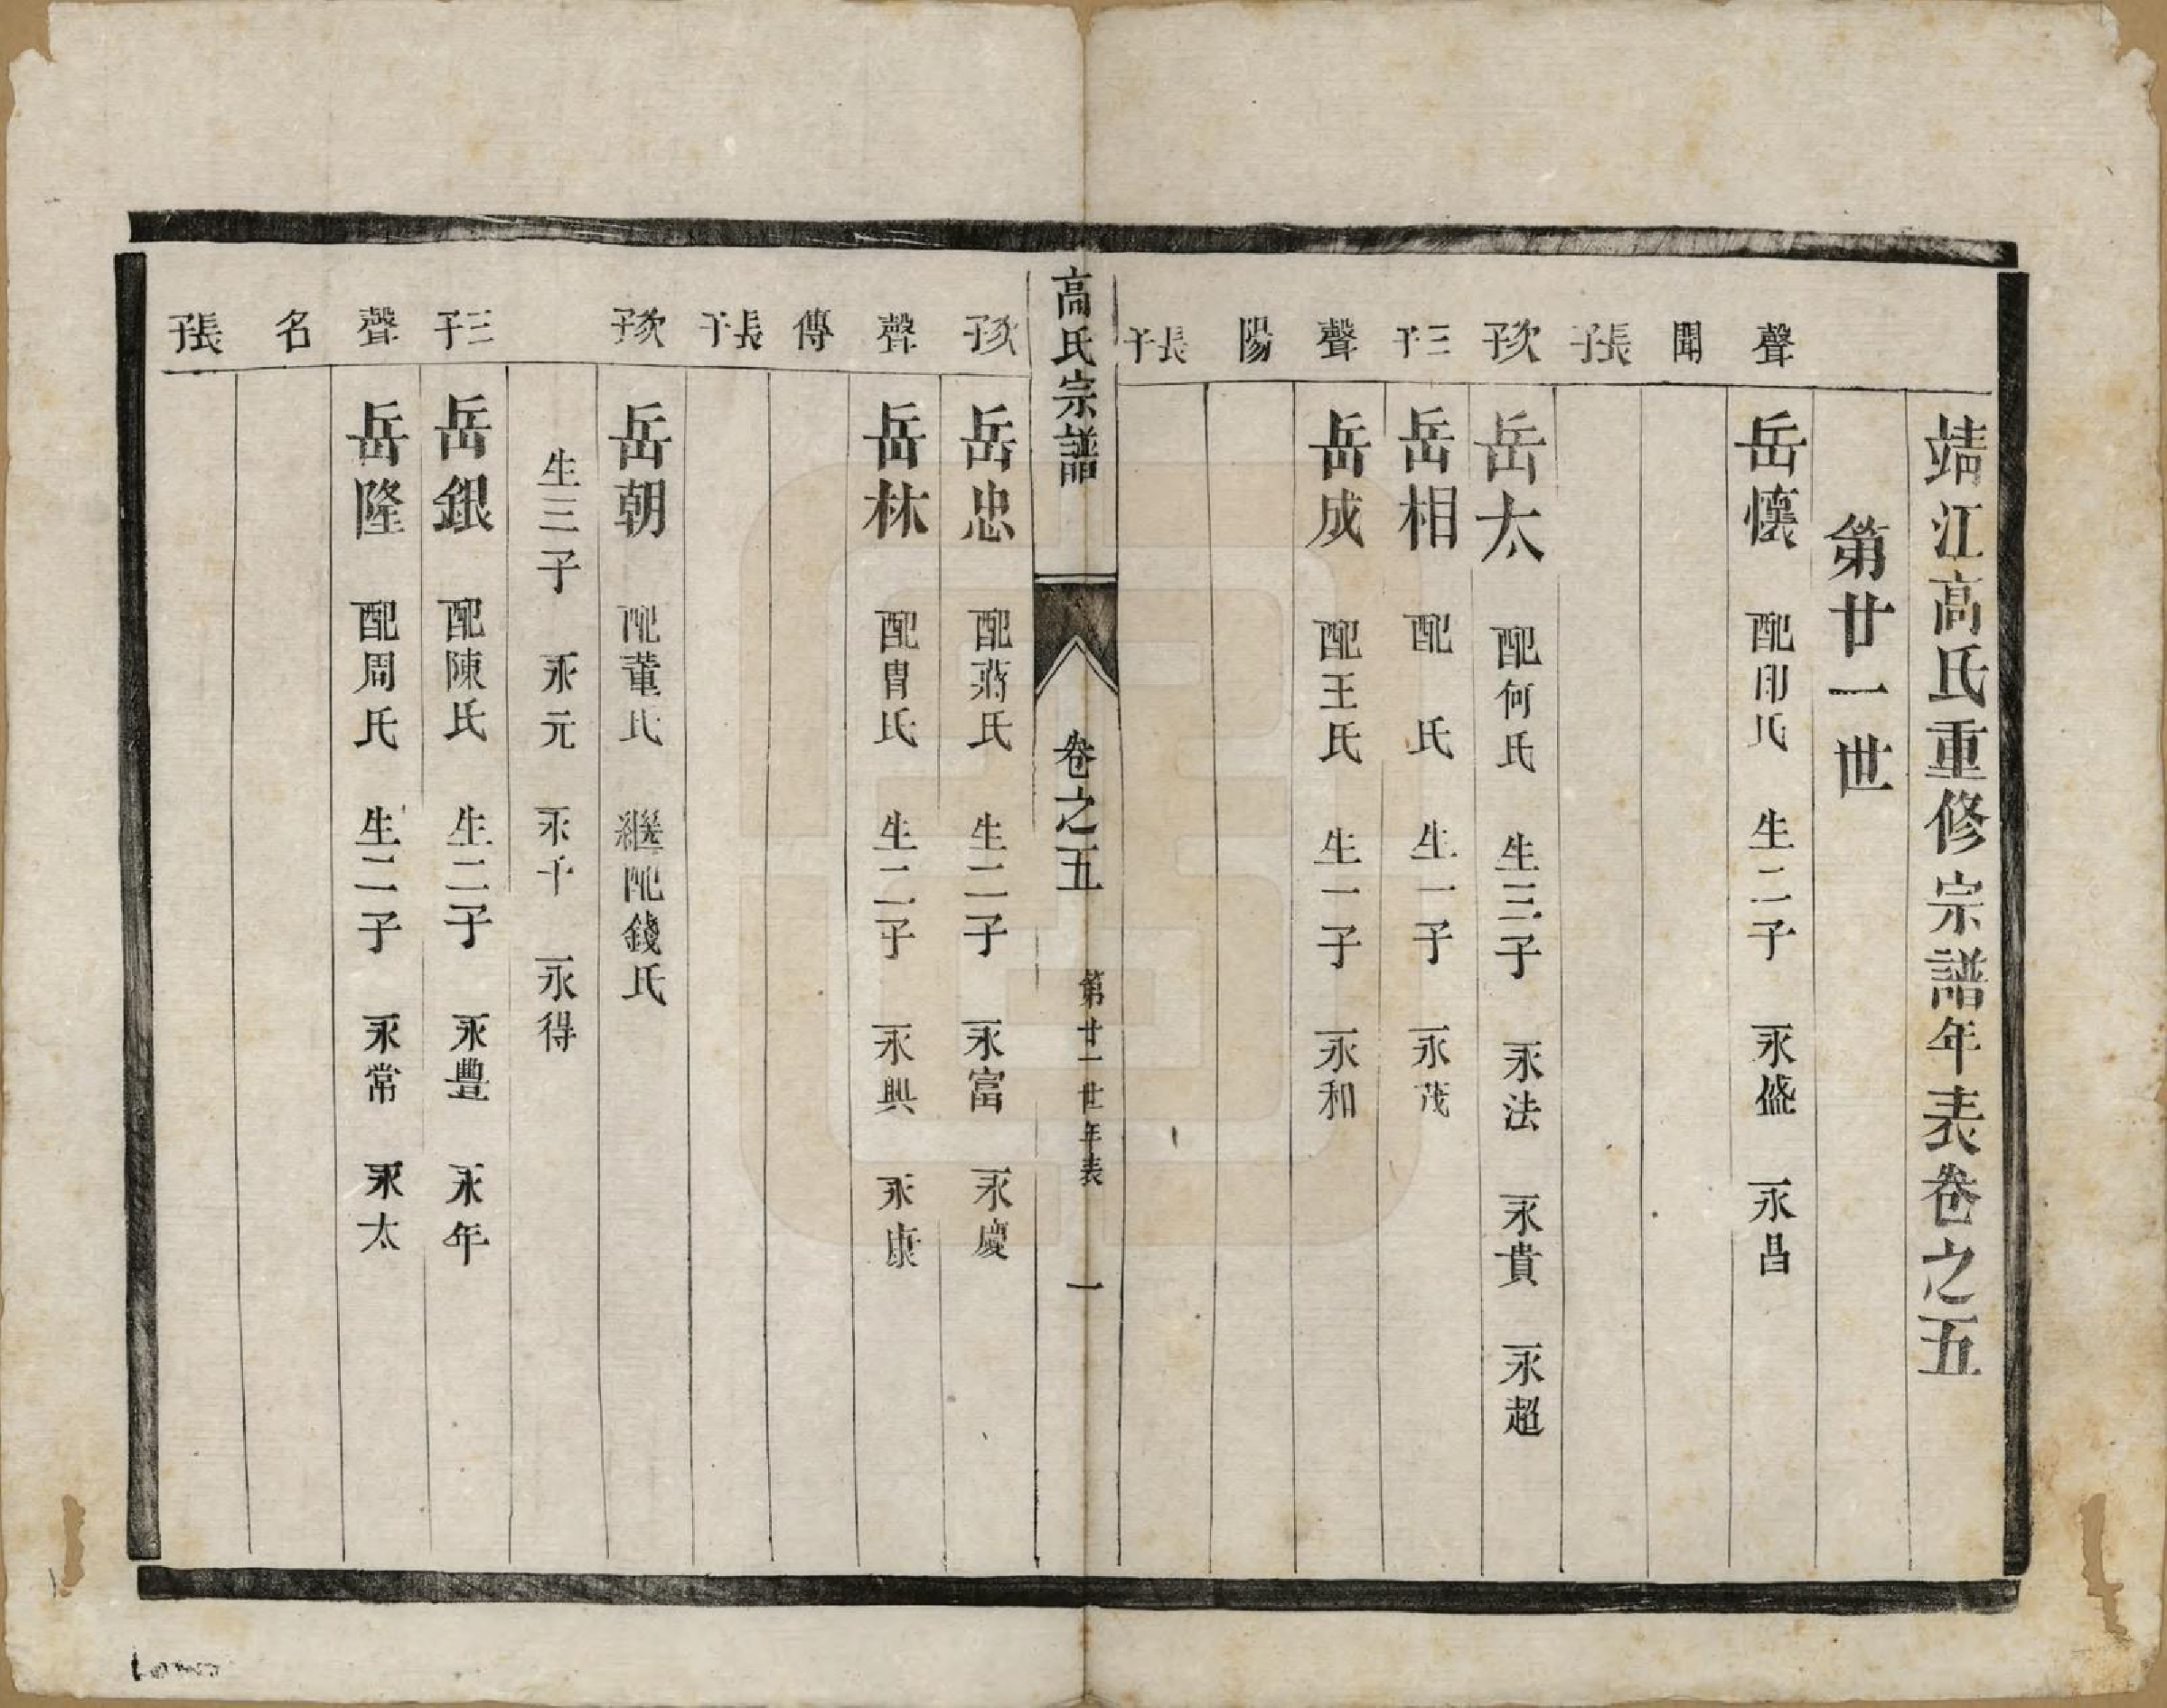 靖江高氏重修宗譜年表卷之五
第廿一世
聲 岳懷 配印氏 生二子 永盛 永昌
聞
長子
次子 岳太 配何氏 生三子 永法 永貴 永超
三子 岳相 配 氏 生一子 永茂
聲 岳成 配王氏 生一子 永和
陽
長子
高氏宗譜 卷之五 第廿一世年表 一
次子 岳忠 配蔣氏 生二子 永富 永慶
聲 岳林 配曹氏 生二子 永興 永康
傳
長子
次子 岳朝 配董氏 繼配錢氏
生三子 永元 永千 永得
三子 岳銀 配陳氏 生二子 永豊 永年
聲 岳隆 配周氏 生二子 永常 永太
名
長子